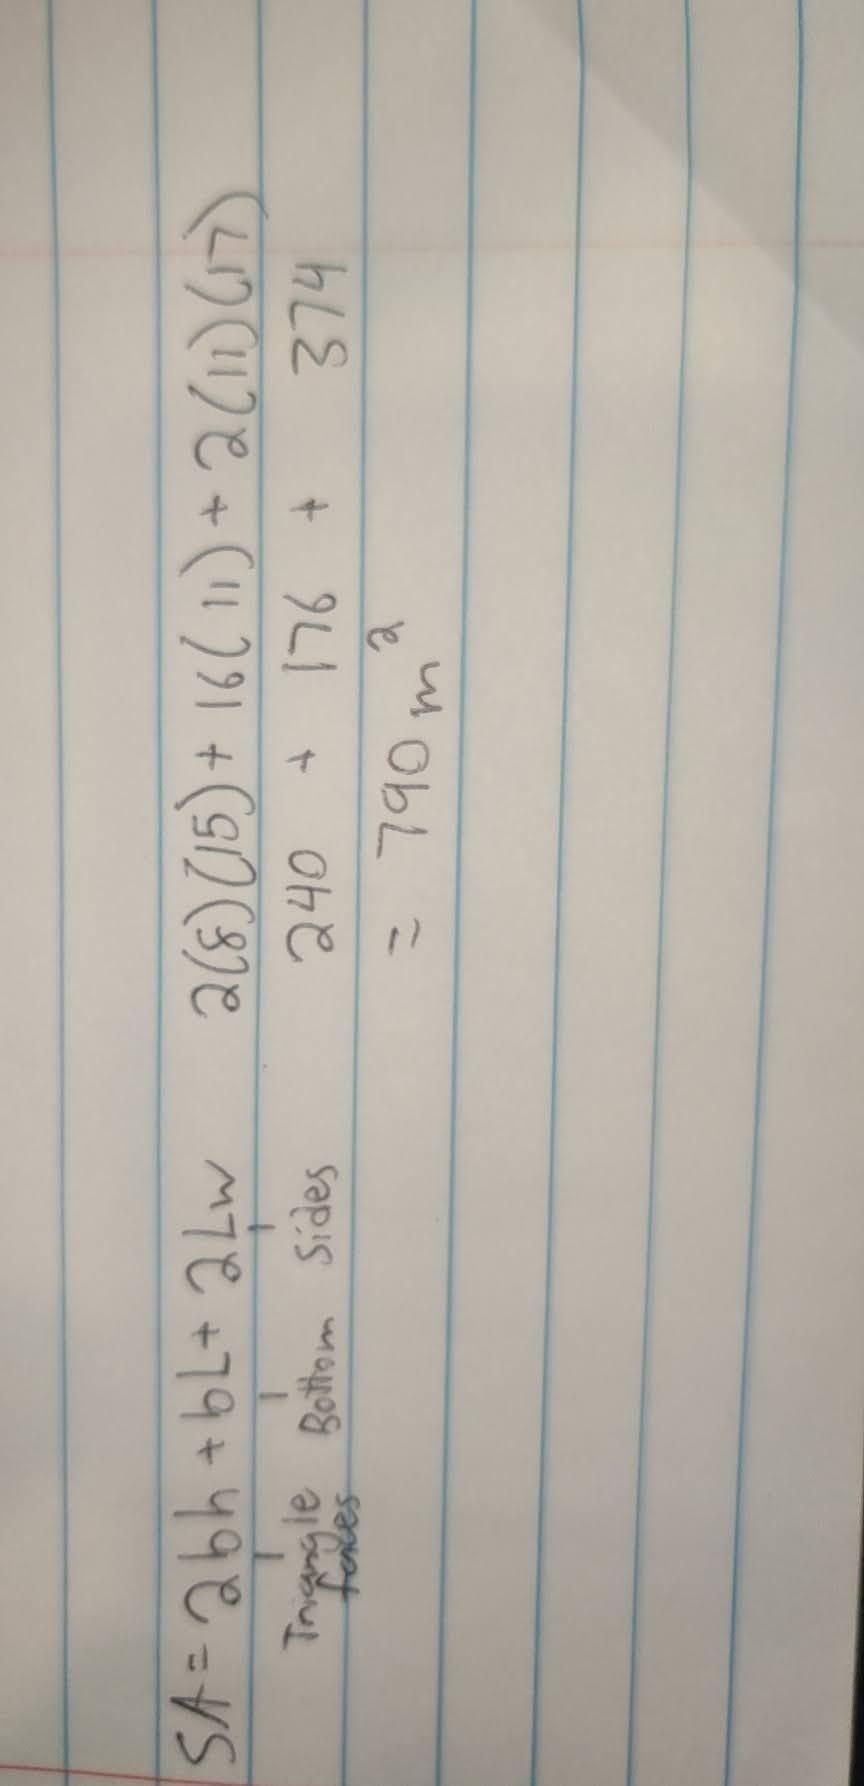 SA = 2bh + bL + 2Lw 2(8)(15) + 16(11) + 2(11)(17)
Triangle faces Bottom Sides 240 + 176 + 374
= 790 m²